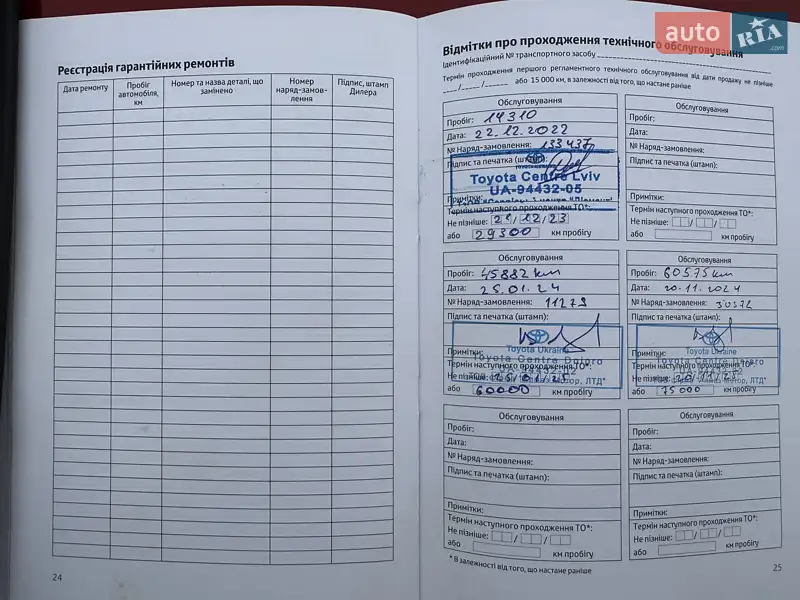 Реєстрація гарантійних ремонтів
Дата ремонту
Пробіг автомобіля, км
Номер та назва деталі, що замінено
Номер наряд-замов-лення
Підпис, штамп Дилера
24
auto RIA .com
Відмітки про проходження технічного обслуговування
Ідентифікаційний № транспортного засобу
Термін проходження першого регламентного технічного обслуговування від дати продажу не пізніше
__/__/____ або 15 000 км, в залежності від того, що настане раніше
Обслуговування
Пробіг: 14310
Дата: 22.12.2022
№ Наряд-замовлення: 133437
Підпис та печатка (штамп):
Toyota Centre Lviv
UA-94432-05
Примітки:
Термін наступного проходження ТО*:
Не пізніше: 21/12/23
або 29300 км пробігу
Обслуговування
Пробіг:
Дата:
№ Наряд-замовлення:
Підпис та печатка (штамп):
Примітки:
Термін наступного проходження ТО*:
Не пізніше:
або км пробігу
Обслуговування
Пробіг: 45882 km
Дата: 25.01.24
№ Наряд-замовлення: 11279
Підпис та печатка (штамп):
Toyota Ukraine
Примітки: Toyota Centre Dnipro
Термін наступного проходження ТО*:
Не пізніше:
або 60000 км пробігу
Обслуговування
Пробіг: 60575 km
Дата: 20.11.2024
№ Наряд-замовлення: 30572
Підпис та печатка (штамп):
Toyota Ukraine
Примітки: Toyota Centre Dnipro
Термін наступного проходження ТО*:
Не пізніше:
або 75000 км пробігу
Обслуговування
Пробіг:
Дата:
№ Наряд-замовлення:
Підпис та печатка (штамп):
Примітки:
Термін наступного проходження ТО*:
Не пізніше:
або км пробігу
Обслуговування
Пробіг:
Дата:
№ Наряд-замовлення:
Підпис та печатка (штамп):
Примітки:
Термін наступного проходження ТО*:
Не пізніше:
або км пробігу
* В залежності від того, що настане раніше
25